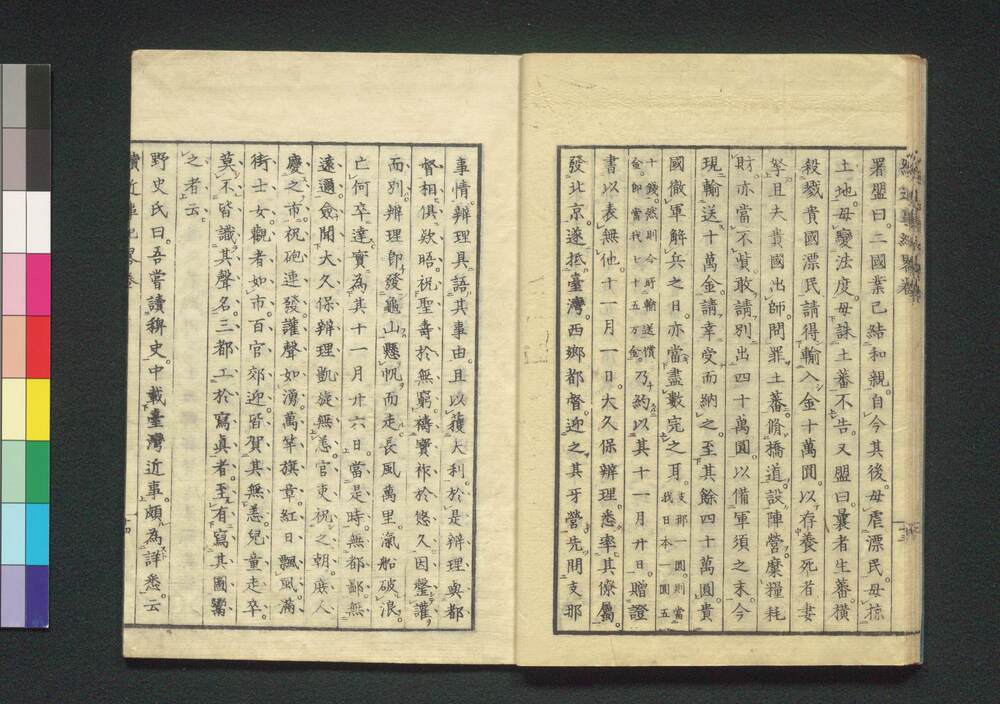 署盟曰。二國業已結和親。自今其後。毋虐漂民。毋掠
土地。毋變法度。毋誅土蕃不告。又盟曰。曩者生蕃橫
殺戮貴國漂民。請得輸入金十萬圓。以存養死者妻
孥。且夫貴國出師。問罪土蕃。脩橋道。設陣營。糜糧耗
財。亦當不貲。敢請別出四十萬圓。以備軍須之末。今
現輸送十萬金。請幸受而納之。至其餘四十萬圓。貴
國徹軍解兵之日。亦當盡數完之耳。支那一圓。則當我日本一圓五
十錢。然則今所輸送償金。即當我七十五万金。乃約以其十一月廾日。贈證
書以表無他。十一月一日。大久保辦理。悉率其僚屬。
發北京。遂抵臺灣。西鄉都督。迎之其牙營。先問支那
事情。辦理具語其事由。且以獲大利。於是辦理與都
督相俱。欵晤。祝聖壽於無窮。禱寶祚於悠久。因罄讙
而別。辦理即發龜山。懸帆而走。長風萬里。滊船破浪。
亡何卒達。寶為其十一月廾六日。當是時。無都鄙無
遠邇。僉聞大久保辦理凱旋無恙。官吏祝之朝。庶人
慶之市。祝砲連發。讙聲如湧。萬竿旗章。紅日飄風。滿
街士女。觀者如市。百官郊迎。皆賀其無恙。兒童走卒。
莫不皆識其聲名。三都工於寫真者。至有寫其圖鬻
之者云。
野史氏曰。吾嘗讀稗史。中載臺灣近事。頗為詳悉。云